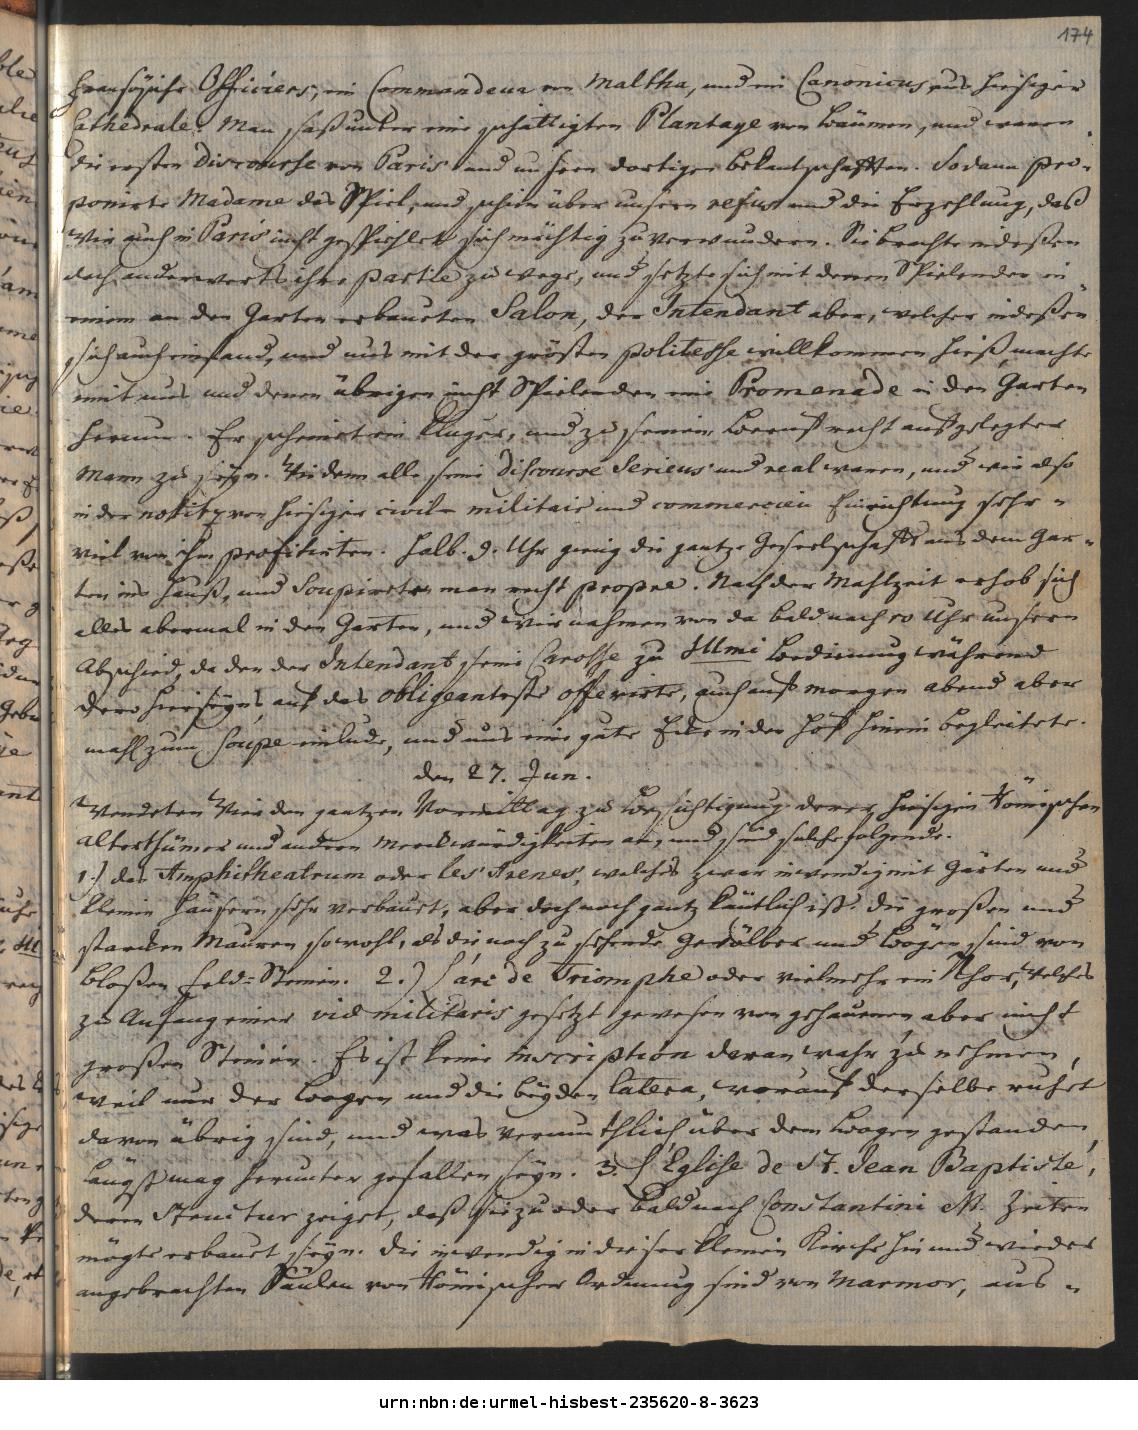 174
Französische Officiers, ein Commandeur von Maltha, und ein Canonicus aus hiesiger
Cathedrale. Man saß unter eine schattigten Plantage von Bäumen, und waren
die ersten Discourse von Paris und unsern dortigen bekantschafften. Sodann pro-
ponirte Madame das Spiel, und schien über unsern refus und die Erzehlung, daß
wir auch in Paris nicht gespielet sich mächtig zu verwundern. Sie brachte indeßen
doch anderwerts ihre partie zu wege, und setzte sich mit denen Spielenden in
einem an den Garten erbaueten Salon, der Intendant aber, welcher indeßen
sich auch einfand, und uns mit der grösten politesse willkommen hieß, machte
mit uns und denen übrigen nicht Spielenden eine Promenade in den Garten
herum. Er scheinet ein kluger, und zu seinem beruf recht aufgelegter
Mann zu seyn. Indem alle seine discourse Serieus und real waren, und wir also
in der notitz von hiesiger civil- militair und commercien Einrichtung sehr
viel von ihm profitirten. Halb. 9. Uhr gieng die gantze Gesellschafft aus dem Gar-
ten ins Hauß, und Soupirete man recht propre. Nach der Mahlzeit erhob sich
alles abermal in den Garten, und wir nahmen von da bald nach 10 Uhr unsern
Abschied, da den der Intendant seine Carosse zu Illmi bedienung während
dero hierseyns auf das obligeanteste offerirte, auch auf morgen abend aber
mahl zum Soupe einlude, und uns eine gute Ecke in den Hof hinein begleitete.
den 27. Jun.
Wendeten wir den gantzen Vormittag zu besichtigung derer hiesigen Römischen
alterthümer und andern Merckwürdigkeiten an, und sind solche folgende.
1.) das Amphitheatrum oder les Arenes, welches zwar inwendig mit Gärten und
kleinen Häusern sehr verbauet, aber doch noch gantz käntlich ist. die großen und
starcken Mauren sowohl, als die noch zu sehende Gewölber und bögen, sind von
bloßen Feld-Steinen. 2.) L'arc de Triomphe oder vielmehr ein Thor, welches
zu Anfang einer viae militaris gesetzt gewesen von gehauenen, aber nicht
großen Steinen. Es ist keine inscription daran wahr zu nehmen,
weil nur der bogen und die beyden latera, worauf derselbe ruhet
davon übrig sind, und was vermuthlich über dem bogen gestanden,
längst mag herunter gefallen seyn. 3. L'Eglise de St. Jean Baptiste,
deren Structur zeiget, daß sie zu oder bald nach Constantini M. Zeiten
mögte erbauet seyn. die inwendig in dieser kleinen Kirche hin und wieder
angebrachten Säulen von Römischer Ordnung sind von Marmor, aus-
urn:nbn:de:urmel-hisbest-235620-8-3623